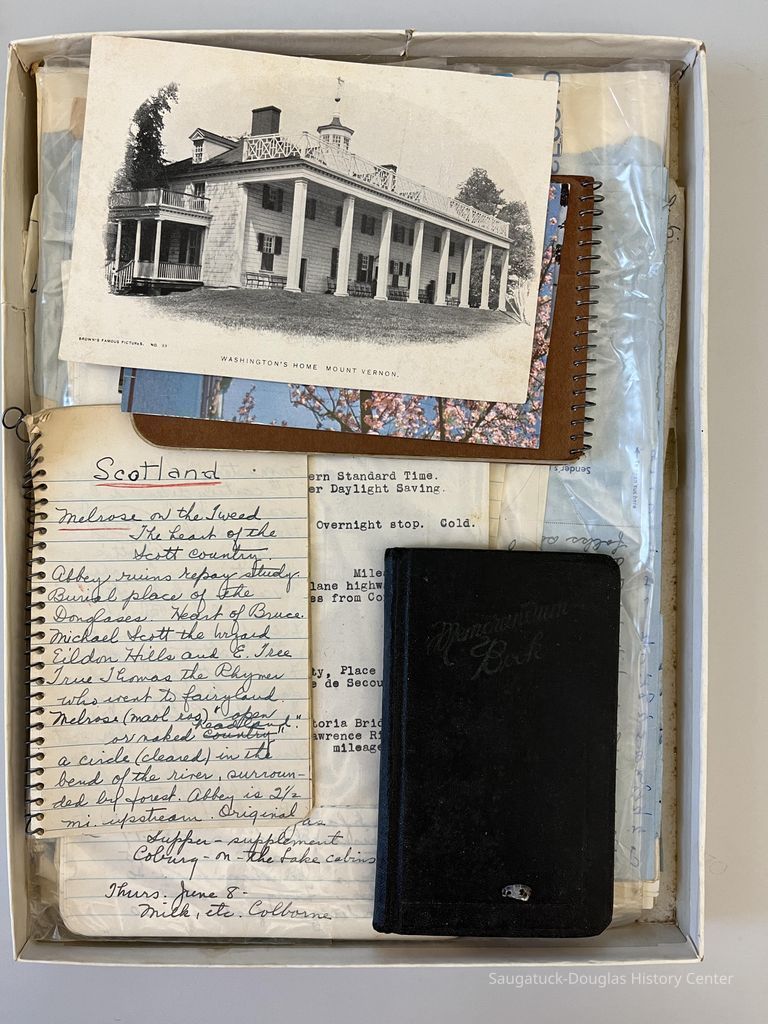 BROWN'S FAMOUS PICTURES. NO.
WASHINGTON'S HOME MOUNT VERNON.
Scotland
Melrose on the Tweed
The heart of the
Scott country
Abbey ruins repay study.
Burial place of the
Douglases. Heart of Bruce.
Michael Scott the wizard
Eildon Hills and E. Tree
True Thomas the Rhymer
who went to fairyland.
Melrose (maol ros) "open
Headland."
or naked country"
a circle (cleared) in the
bend of the river, surroun-
ded by forest. Abbey is 2½
mi. upstream. Original
ern Standard Time.
er Daylight Saving.
Overnight stop. Cold.
Mile
lane highw
es from Co
ty, Place
e de Secou
toria Brid
awrence Ri
mileage
Memorandum
Book
as
Supper - supplement
Coburg - on - the Lake cabins
Thurs. June 8 -
Milk, etc. Colborne
Sender's
Saugatuck-Douglas History Center